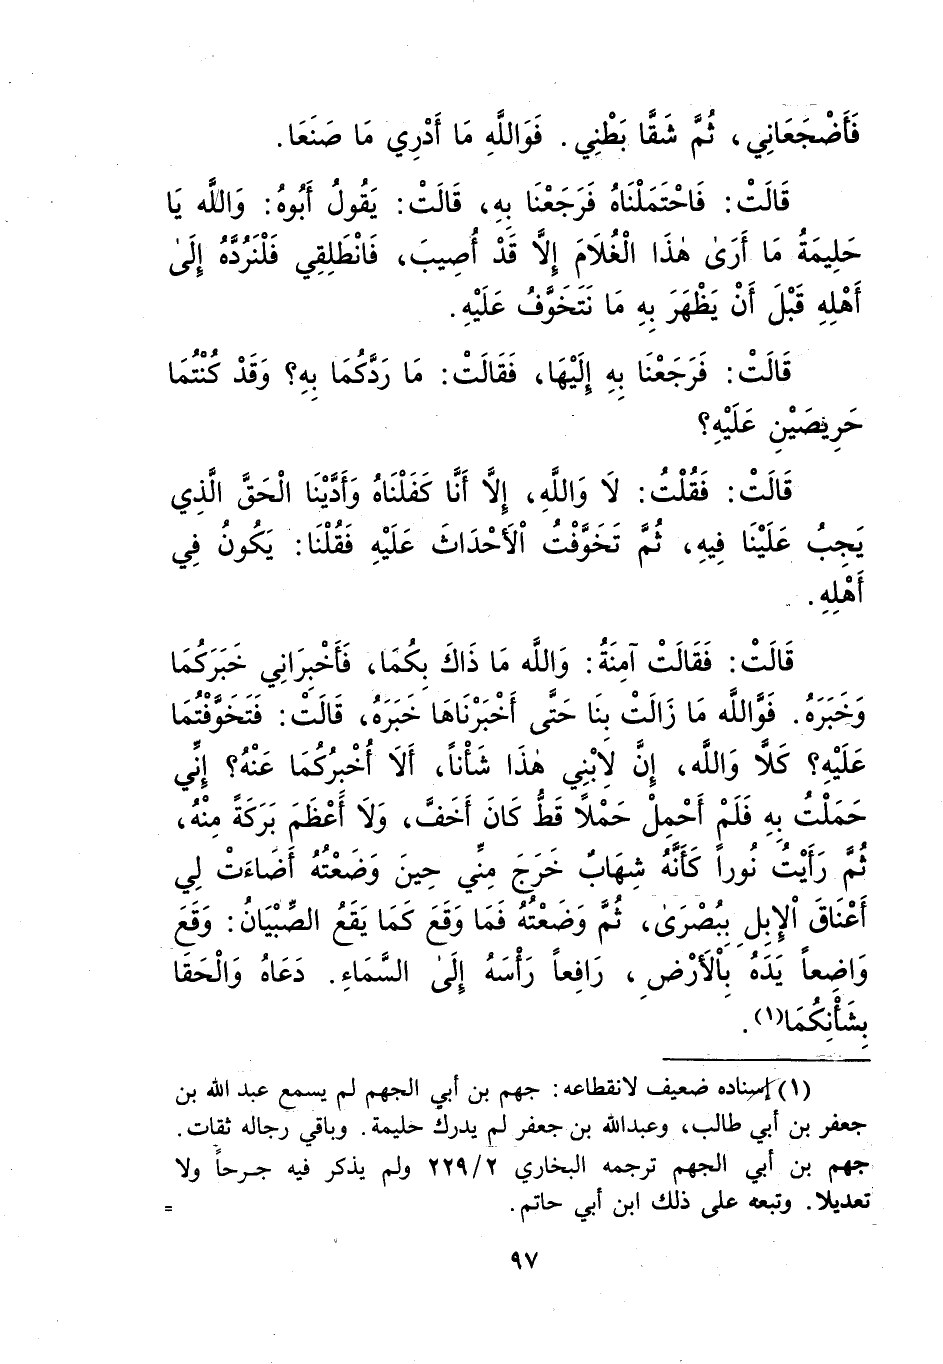 فَأَضْجَعَانِي، ثُمَّ شَقَّا بَطْنِي. فَوَاللَّهِ مَا أَدْرِي مَا صَنَعَا.
قَالَتْ: فَاحْتَمَلْنَاهُ فَرَجَعْنَا بِهِ، قَالَتْ: يَقُولُ أَبُوهُ: وَاللَّه يَا
حَلِيمَةُ مَا أَرَىٰ هٰذَا الْغُلَامَ إِلَّا قَدْ أُصِيبَ، فَانْطَلِقِي فَلْنَرُدَّهُ إِلَىٰ
أَهْلِهِ قَبْلَ أَنْ يَظْهَرَ بِهِ مَا نَتَخَوَّفُ عَلَيْهِ.
قَالَتْ: فَرَجَعْنَا بِهِ إِلَيْهَا، فَقَالَتْ: مَا رَدَّكُمَا بِهِ؟ وَقَدْ كُنْتُمَا
حَرِيصَيْنِ عَلَيْهِ؟
قَالَتْ: فَقُلْتُ: لَا وَاللَّهِ، إِلَّا أَنَّا كَفَلْنَاهُ وَأَدَّيْنَا الْحَقَّ الَّذِي
يَجِبُ عَلَيْنَا فِيهِ، ثُمَّ تَخَوَّفْتُ الْأَحْدَاثَ عَلَيْهِ فَقُلْنَا: يَكُونُ فِي
أَهْلِهِ.
قَالَتْ: فَقَالَتْ آمِنَةُ: وَاللَّه مَا ذَاكَ بِكُمَا، فَأَخْبِرَانِي خَبَرَكُمَا
وَخَبَرَهُ. فَوَاللَّه مَا زَالَتْ بِنَا حَتَّى أَخْبَرْنَاهَا خَبَرَهُ، قَالَتْ: فَتَخَوَّفْتُمَا
عَلَيْهِ؟ كَلَّا وَاللَّه، إِنَّ لِابْنِي هٰذَا شَأْناً، أَلَا أُخْبِرُكُمَا عَنْهُ؟ إِنِّي
حَمَلْتُ بِهِ فَلَمْ أَحْمِلْ حَمْلًا قَطُّ كَانَ أَخَفَّ، وَلَا أَعْظَمَ بَرَكَةً مِنْهُ،
ثُمَّ رَأَيْتُ نُوراً كَأَنَّهُ شِهَابٌ خَرَجَ مِنِّي حِينَ وَضَعْتُهُ أَضَاءَتْ لِي
أَعْنَاقَ الْإِبِلِ بِبُصْرَىٰ، ثُمَّ وَضَعْتُهُ فَمَا وَقَعَ كَمَا يَقَعُ الصِّبْيَانُ: وَقَعَ
وَاضِعاً يَدَهُ بِالْأَرْضِ، رَافِعاً رَأْسَهُ إِلَىٰ السَّمَاءِ. دَعَاهُ وَالْحَقَا
بِشَأْنِكُمَا(١).
(١) إسناده ضعيف لانقطاعه: جهم بن أبي الجهم لم يسمع عبد الله بن
جعفر بن أبي طالب، وعبدالله بن جعفر لم يدرك حليمة. وباقي رجاله ثقات.
جهم بن أبي الجهم ترجمه البخاري ٢/ ٢٢٩ ولم يذكر فيه جرحاً ولا
تعديلا. وتبعه على ذلك ابن أبي حاتم. =
٩٧